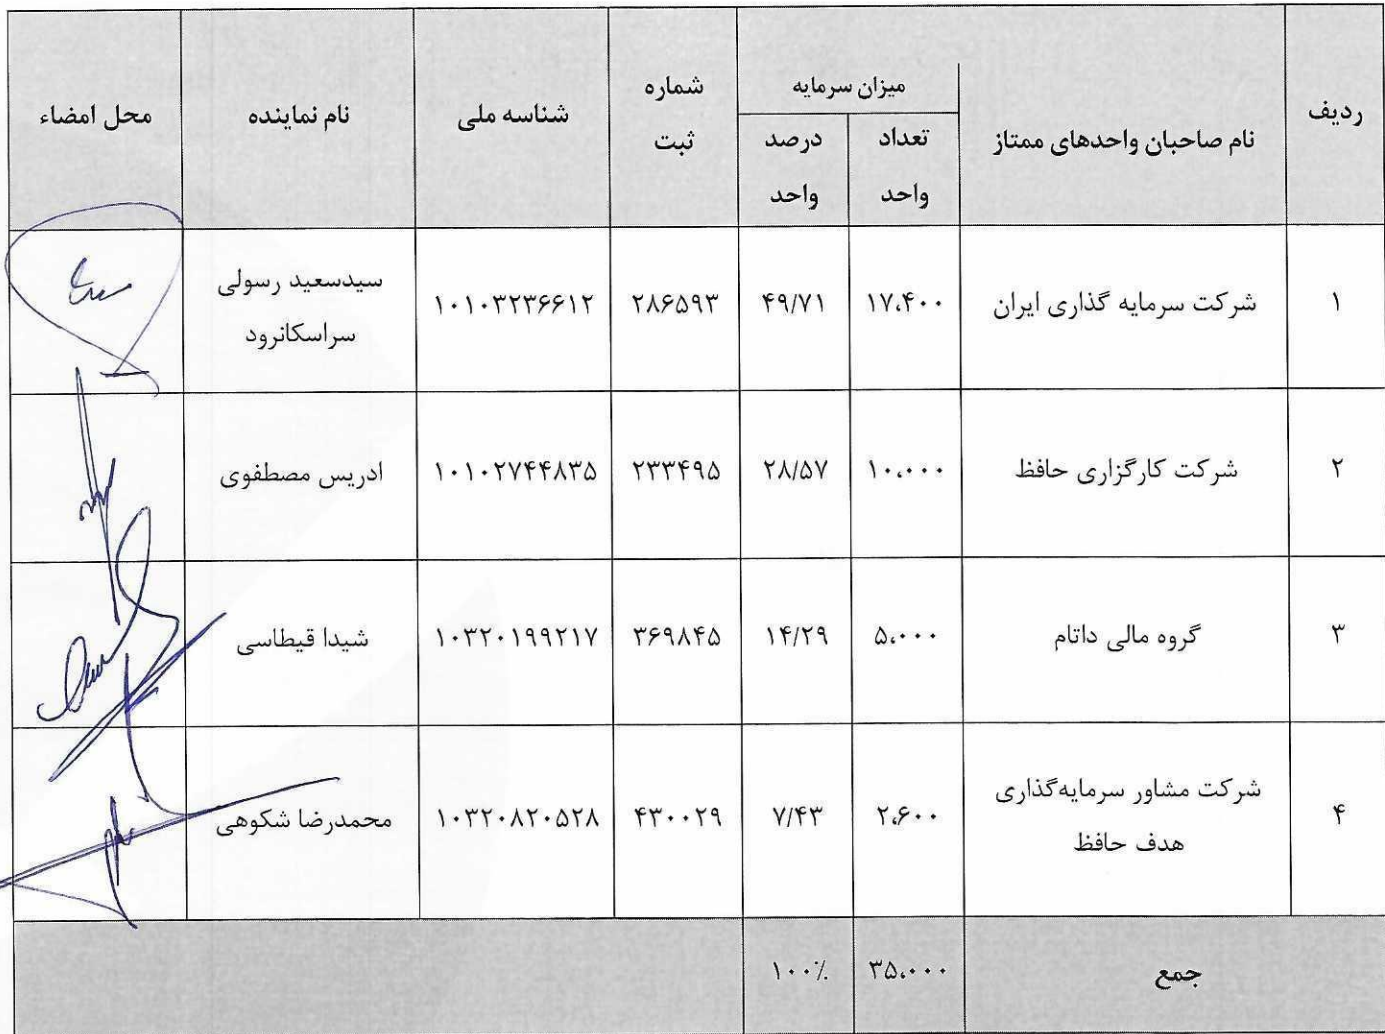 ردیف
نام صاحبان واحدهای ممتاز
میزان سرمایه
تعداد
واحد
درصد
واحد
شماره
ثبت
شناسه ملی
نام نماینده
محل امضاء
۱
شرکت سرمایه گذاری ایران
۱۷،۴۰۰
۴۹/۷۱
۲۸۶۵۹۳
۱۰۱۰۳۲۳۶۶۱۲
سیدسعید رسولی
سراسکانرود
۲
شرکت کارگزاری حافظ
۱۰،۰۰۰
۲۸/۵۷
۲۳۳۴۹۵
۱۰۱۰۲۷۴۴۸۳۵
ادریس مصطفوی
۳
گروه مالی داتام
۵،۰۰۰
۱۴/۲۹
۳۶۹۸۴۵
۱۰۳۲۰۱۹۹۲۱۷
شیدا قیطاسی
۴
شرکت مشاور سرمایه‌گذاری
هدف حافظ
۲،۶۰۰
۷/۴۳
۴۳۰۰۲۹
۱۰۳۲۰۸۲۰۵۲۸
محمدرضا شکوهی
جمع
۳۵،۰۰۰
۱۰۰٪